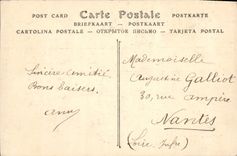 POST CARD Carte Postale POSTKARTE
BRIEFKAART - POSTKAART
CARTOLINA POSTALE - ОТКРЫТОЕ ПИСЬМО - TARJETA POSTAL
Sincère amitié
Bons baisers
Mademoiselle
Augustine Galliot
30, rue Ampère
Nantes
(Loire Infre)